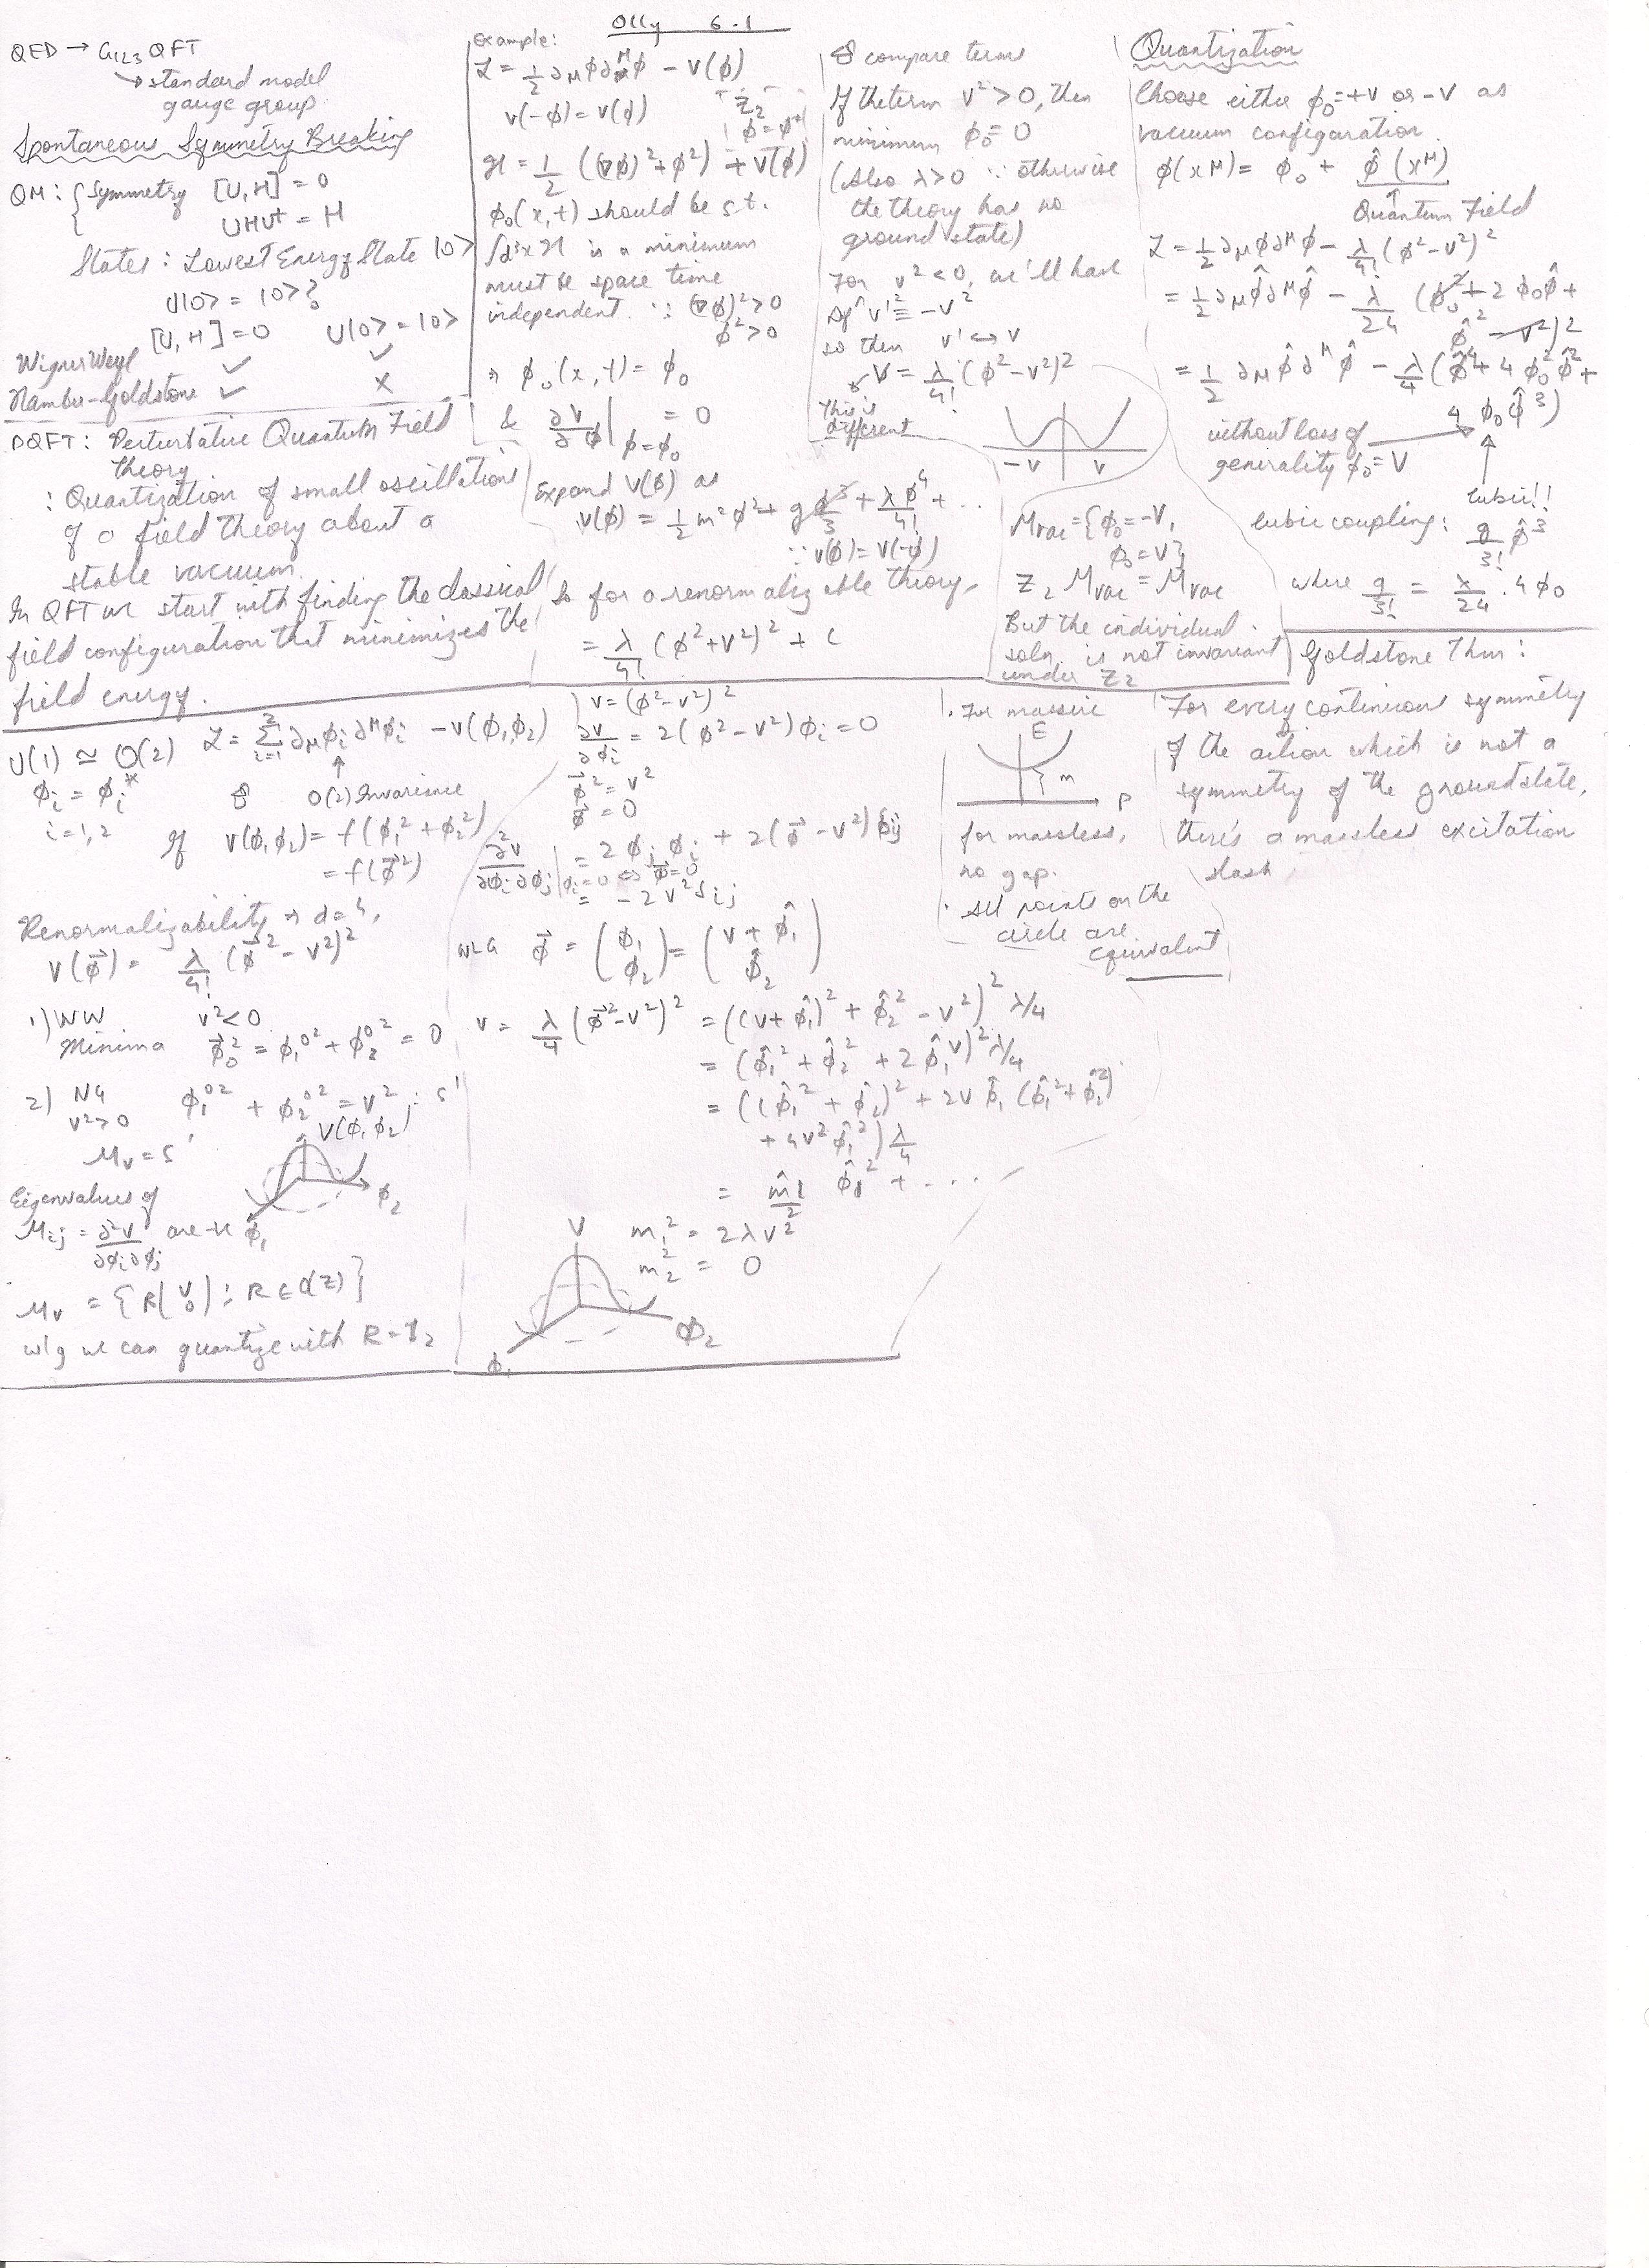 Olly 6.1
QED → G₁₂₃ QFT
↳ standard model
gauge group
Spontaneous Symmetry Breaking
QM: { Symmetry [U,H] = 0
UHU† = H
States: Lowest Energy State |0>
U|0> = |0>?
[U,H]=0 U|0>=|0>
Wigner Weyl ✓ ✓
Nambu-Goldstone ✓ ×
PQFT: Perturbative Quantum Field
Theory
: Quantization of small oscillations
of a field theory about a
stable vacuum.
In QFT we start with finding the classical
field configuration that minimizes the
field energy.
Example:
ℒ = 1/2 ∂μφ∂^μφ - V(φ)
V(-φ) = V(φ) Z₂
φ = φ*
ℋ = 1/2 ((∇φ)² + φ̇²) + V(φ)
φ₀(x,t) should be s.t.
∫d³x ℋ is a minimum
must be space time
independent. ∵ (∇φ)²>0
φ̇²>0
⇒ φ₀(x,t) = φ₀
& ∂V/∂φ|φ=φ₀ = 0
Expand V(φ) as
V(φ) = 1/2 m²φ² + gφ³/3 + λφ⁴/4! + ...
∵ V(φ) = V(-φ)
So for a renormalizable theory,
= λ/4! (φ²+v²)² + C
& compare terms
If the term v²>0, then
minimum φ₀ = 0
(Also λ>0 ∵ otherwise
the theory has no
ground state)
For v²<0, we'll have
v'² ≡ -v²
so then v' ↔ v
V = λ/4! (φ²-v²)²
This is
different
-v v
M_vac = {φ₀=-v,
φ₀=v}
Z₂ M_vac = M_vac
But the individual
soln is not invariant
under Z₂
Quantization
Choose either φ₀=+v or -v as
vacuum configuration.
φ(x^μ) = φ₀ + φ̂(x^μ)
Quantum Field
ℒ = 1/2 ∂μφ∂^μφ - λ/4! (φ²-v²)²
= 1/2 ∂μφ̂∂^μφ̂ - λ/24 (φ₀² + 2φ₀φ̂ +
φ̂² - v²)²
= 1/2 ∂μφ̂∂^μφ̂ - λ/4 (φ̂⁴ + 4φ₀²φ̂² +
4 φ₀φ̂³)
without loss of
generality φ₀=v
Cubic!!
Cubic coupling: g/3! φ̂³
where g/3! = λ/24 · 4φ₀
Goldstone Thm:
For every continuous symmetry
of the action which is not a
symmetry of the ground state,
there's a massless excitation
U(1) ≃ O(2) ℒ = Σ²ᵢ₌₁ ∂μφᵢ∂^μφᵢ - V(φ₁φ₂)
φᵢ = φᵢ* O(2) Invariance
i=1,2 If V(φ₁φ₂) = f(φ₁²+φ₂²)
= f(φ⃗²)
Renormalizability ⇒ d=4,
V(φ⃗) = λ/4! (φ⃗²-v²)²
1) WW v²<0
Minima φ⃗₀² = φ₁⁰² + φ₂⁰² = 0
2) NG
v²>0 φ₁⁰² + φ₂⁰² = v² : S¹
M_v = S¹ V(φ₁φ₂)
φ₂
φ₁
Eigenvalues of
Mᵢⱼ = ∂²V/∂φᵢ∂φⱼ are -ve
M_v = {R(v 0) : R ∈ O(2)}
wlg we can quantize with R=1₂
V = (φ²-v²)²
∂V/∂φᵢ = 2(φ²-v²)φᵢ = 0
φ⃗² = v²
φ⃗ = 0
∂²V/∂φᵢ∂φⱼ|φᵢ=0 ⇔ φ⃗=0 = 2φⱼφᵢ + 2(φ⃗-v²)δᵢⱼ
= -2v²δᵢⱼ
WLG φ⃗ = (φ₁ φ₂) = (v+φ̂₁ φ̂₂)
V = λ/4 (φ⃗²-v²)² = ((v+φ̂₁)² + φ̂₂² - v²)² λ/4
= (φ̂₁² + φ̂₂² + 2φ̂₁v)² λ/4
= ((φ̂₁² + φ̂₂²)² + 2vφ̂₁(φ̂₁²+φ̂₂²)
+ 4v²φ̂₁²) λ/4
= m̂₁/2 φ̂₁² + ....
m₁² = 2λv²
m₂² = 0
V
φ₂
φ₁
· For massive
E
m
p
for massless,
no gap.
· All points on the
circle are
equivalent